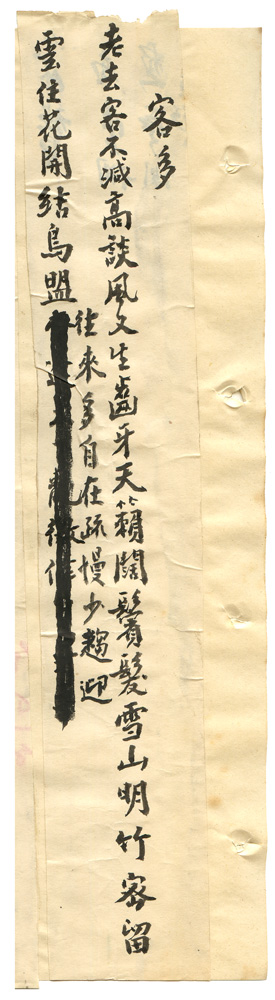 客多
老去客不減高談風又生齒牙天籟闊鬢髮雪山明竹密留
雲住花開結鳥盟
往來多自在疏慢少趨迎